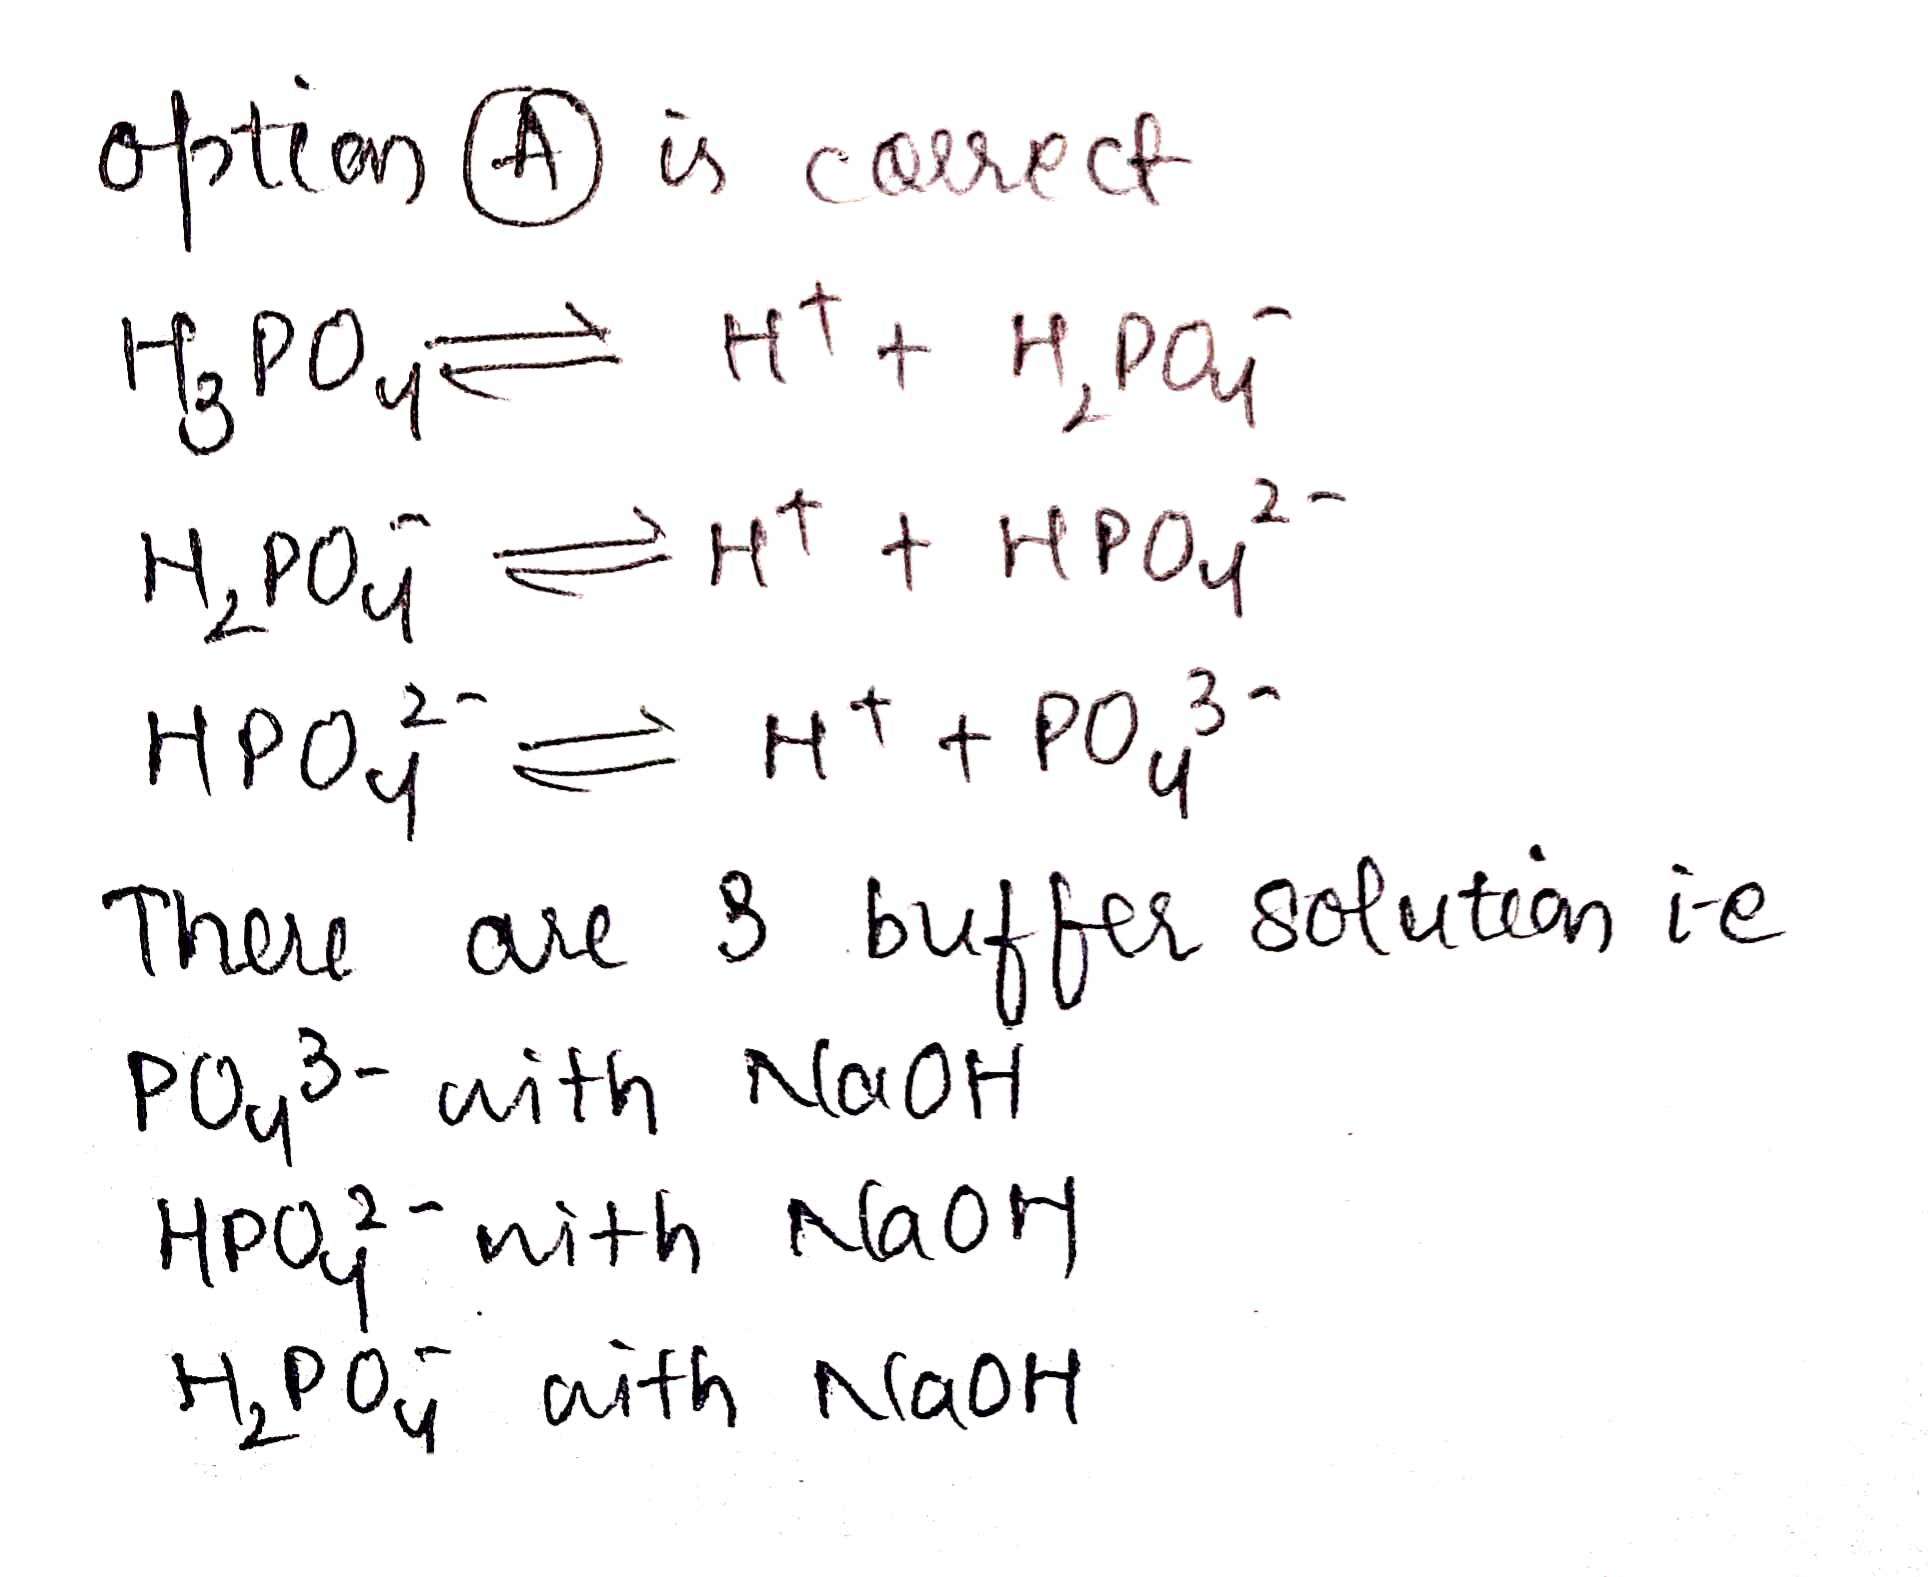 option A is correct
H₃PO₄ ⇌ H⁺ + H₂PO₄⁻
H₂PO₄⁻ ⇌ H⁺ + HPO₄²⁻
HPO₄²⁻ ⇌ H⁺ + PO₄³⁻
There are 3 buffer solution i-e
PO₄³⁻ with NaOH
HPO₄²⁻ with NaOH
H₂PO₄⁻ with NaOH